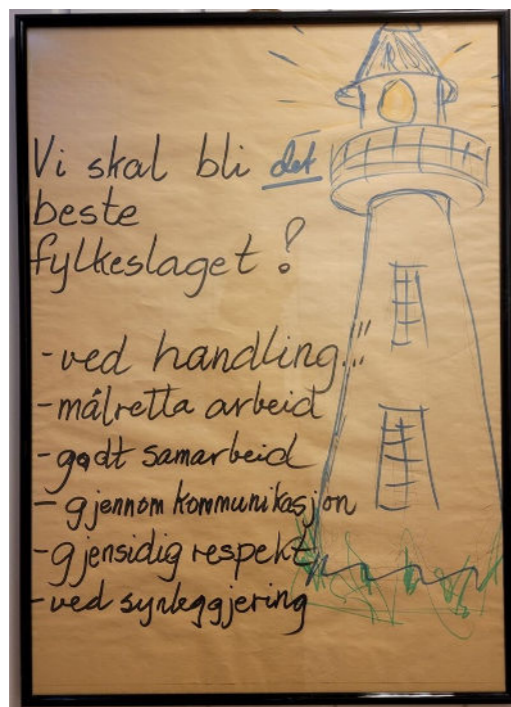 Vi skal bli det
beste
fylkeslaget!
- ved handling..."
- målretta arbeid
- godt samarbeid
- gjennom kommunikasjon
- gjensidig respekt
- ved synleggjering